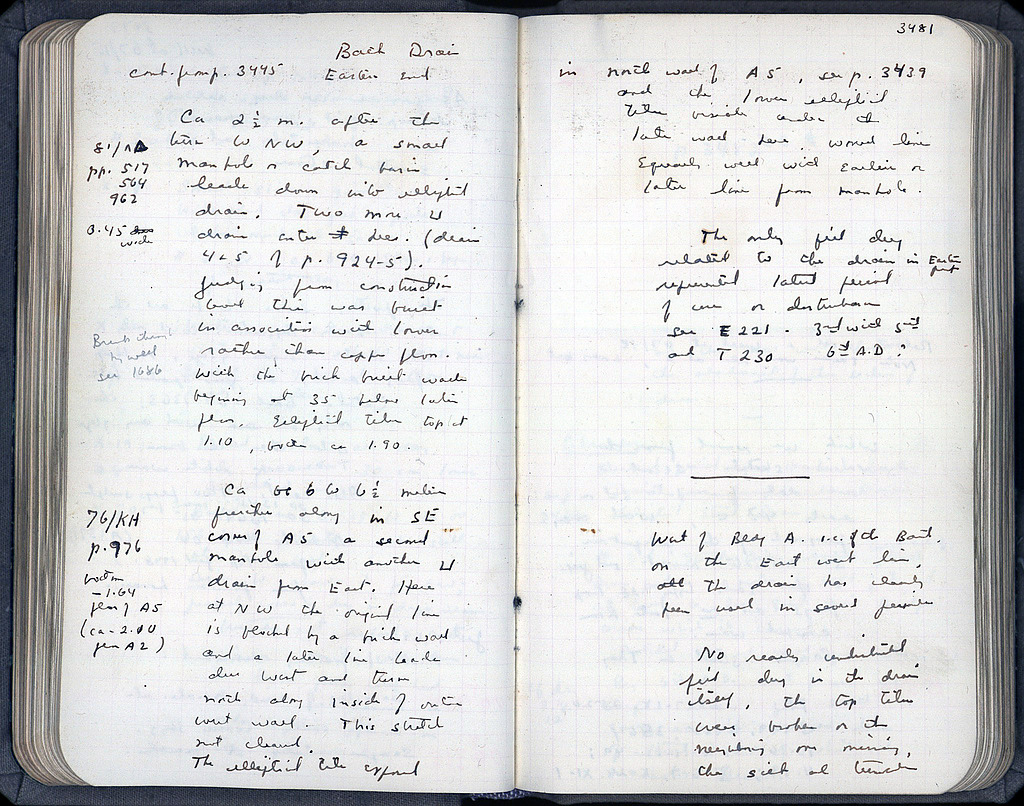 Bath Drain
cont. from p. 3445 Eastern End
Ca 2½ m. after the
turn to NW, a small
81/ΛΔ
manhole or catch basin
pp. 517
564
962
leads down into elliptical
drain. Two more U
0.45
wide
drain enter here. (drain
4 & 5 of p. 924-5).
Judging from construction
level this was built
in association with lower
Break through
to well
see 1686
rather than upper floor.
with the brick built walls
beginning at 35 below later
floor. Elliptical tiles top at
1.10, bottom ca 1.90.
Ca 6 to 6½ meters
76/KH
p. 976
further along in SE
corner of A5 a second
manhole with another U
bottom
-1.64
floor of A5
(ca -2.00
from A2)
drain from East. Here
at NW the original line
is blocked by a brick wall
and a later line leads
due west and turns
north along inside of outer
west wall. This stretch
not cleared.
The elliptical tile exposed
3481
in north wall of A5, see p. 3439
and the lower elliptical
tiles visible under the
later wall here, would line
equally well with earlier or
later line from manhole.
The only field dug
related to the drain in Eastern
part
represented latest period
of use or disturbance
see E 221. 3rd with 5th
and T 230 6th A.D.?
West of Bldg A. i.e. of the Bath.
on the East west line,
the drain has clearly
been used in several periods
No really undisturbed
field dug in the drain
itself, the top tiles
were broken or the
neighboring ones missing,
the silt at